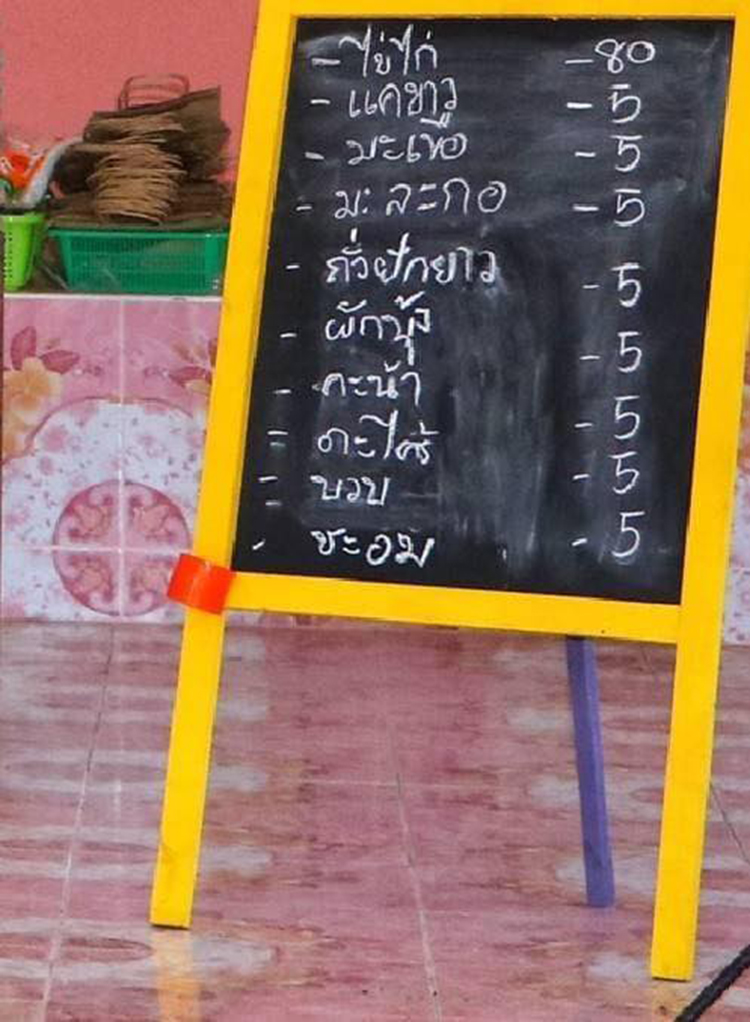 - ไข่ไก่ - 80
- แคขาว - 5
- มะเขือ - 5
- มะละกอ - 5
- ถั่วฝักยาว - 5
- ผักบุ้ง - 5
- คะน้า - 5
- ตะไคร้ - 5
- บวบ - 5
- ชะอม